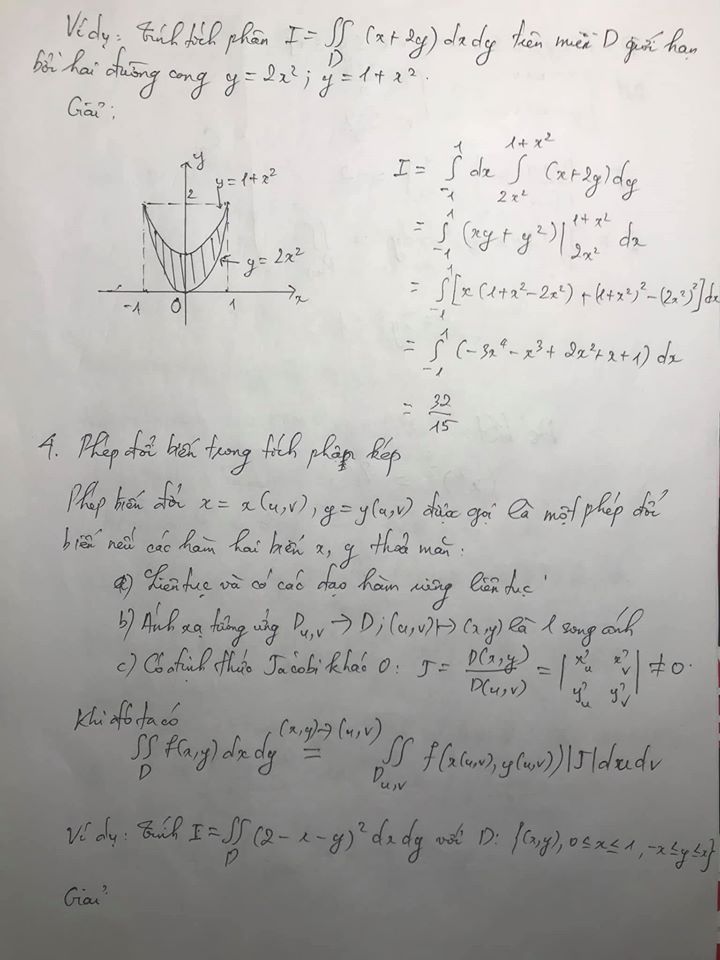 Ví dụ: Tính tích phân I = ∬_D (x + 2y) dx dy trên miền D giới hạn
bởi hai đường cong y = 2x²; y = 1 + x².
Giải:
y
y = 1 + x²
2
y = 2x²
-1 0 1 x
I = ∫_{-1}^{1} dx ∫_{2x²}^{1+x²} (x + 2y) dy
= ∫_{-1}^{1} (xy + y²) |_{2x²}^{1+x²} dx
= ∫_{-1}^{1} [x(1 + x² - 2x²) + (1 + x²)² - (2x²)²] dx
= ∫_{-1}^{1} (-3x⁴ - x³ + 2x² + x + 1) dx
= 32/15
4. Phép đổi biến trong tích phân kép
Phép biến đổi x = x(u,v), y = y(u,v) được gọi là một phép đổi
biến nếu các hàm hai biến x, y thoả mãn:
a) Liên tục và có các đạo hàm riêng liên tục
b) Ánh xạ tương ứng D_{u,v} → D; (u,v) ↦ (x,y) là 1 song ánh
c) Có định thức Jacôbi khác 0: J = D(x,y)/D(u,v) = |x'_u x'_v; y'_u y'_v| ≠ 0.
Khi đó ta có
∬_D f(x,y) dx dy (x,y)→(u,v) = ∬_{D_{u,v}} f(x(u,v), y(u,v)) |J| du dv
Ví dụ: Tính I = ∬_D (2 - x - y)² dx dy với D: {(x,y), 0 ≤ x ≤ 1, -x ≤ y ≤ x}
Giải